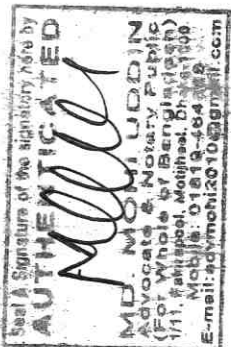 Seal & Signature of the signatory here by
AUTHENTICATED
MD. MOHI UDDIN
Advocate & Notary Public
(For Whole of Bangladesh)
1/11, Motijheel, Dhaka-1000
Mobile: 01819-
E-mail:advmohi2010@gmail.com